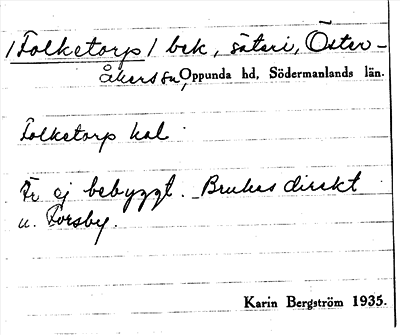 /Folketorp/ bek, säteri, Öster-
åkers sn, Oppunda hd, Södermanlands län.
Folketorp kal
Är ej bebyggt. Brukas direkt
u. Forsby.
Karin Bergström 1935.